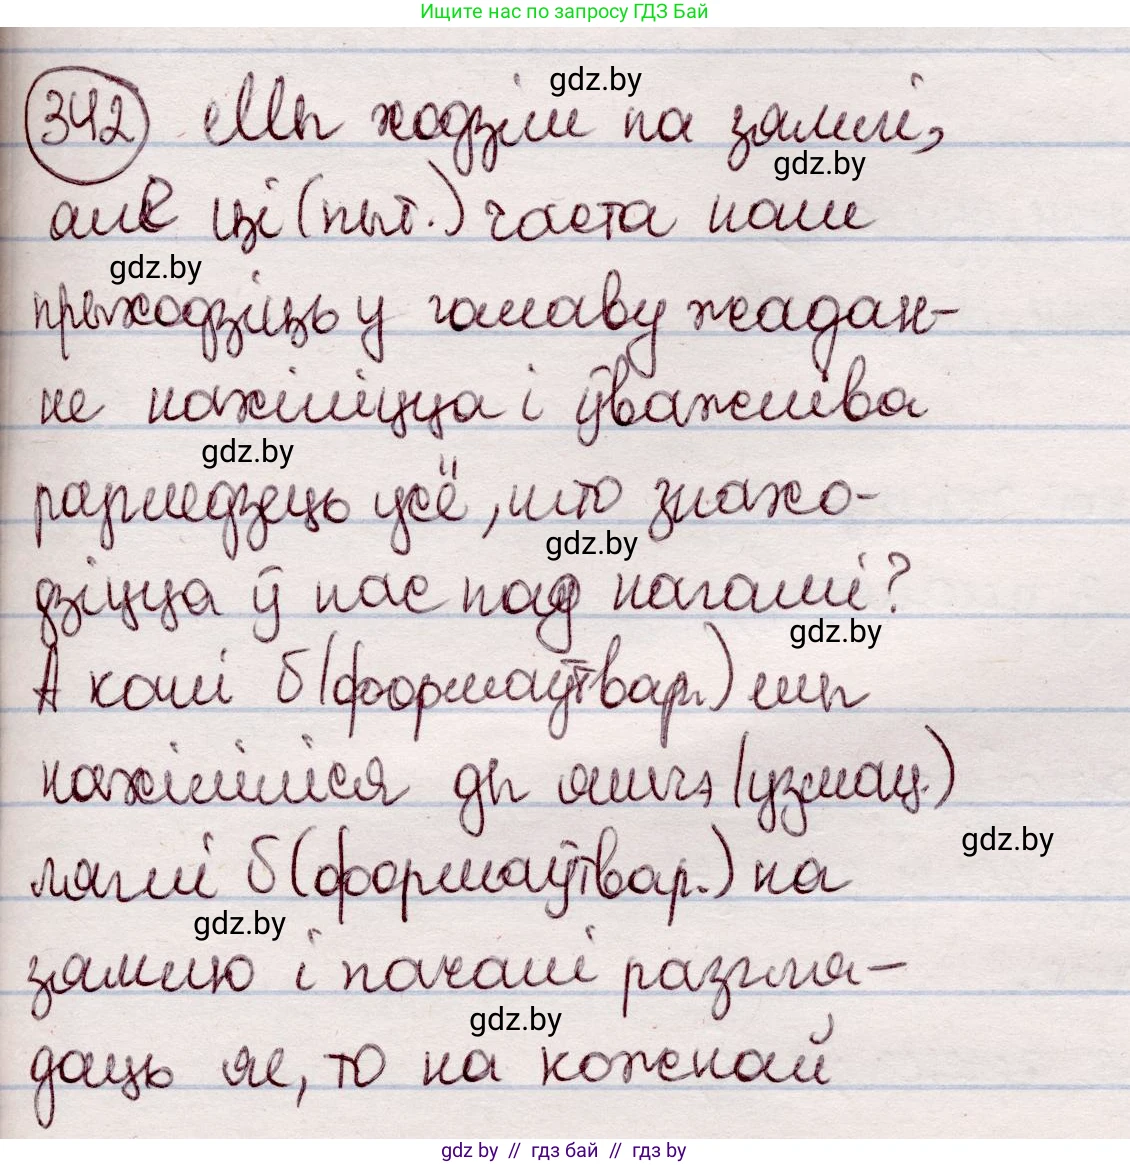 Ищите нас по запросу ГДЗ Бай
gdz.by
342 Мы ходзім па зямлі,
gdz.by
але ці (пыт.) часта нам
gdz.by
прыходзіць у галаву жадан-
не нахіліцца і ўважліва
gdz.by
разгледзець усё, што знахо-
gdz.by
дзіцца ў нас пад нагамі?
gdz.by
А калі б (формаўтвар.) мы
нахіліліся ды яшчэ (узмац.)
gdz.by
ляглі б (формаўтвар.) на
gdz.by
зямлю і пачалі разгля-
gdz.by
даць яе, то на кожнай
gdz by // гдз бай // гдз by